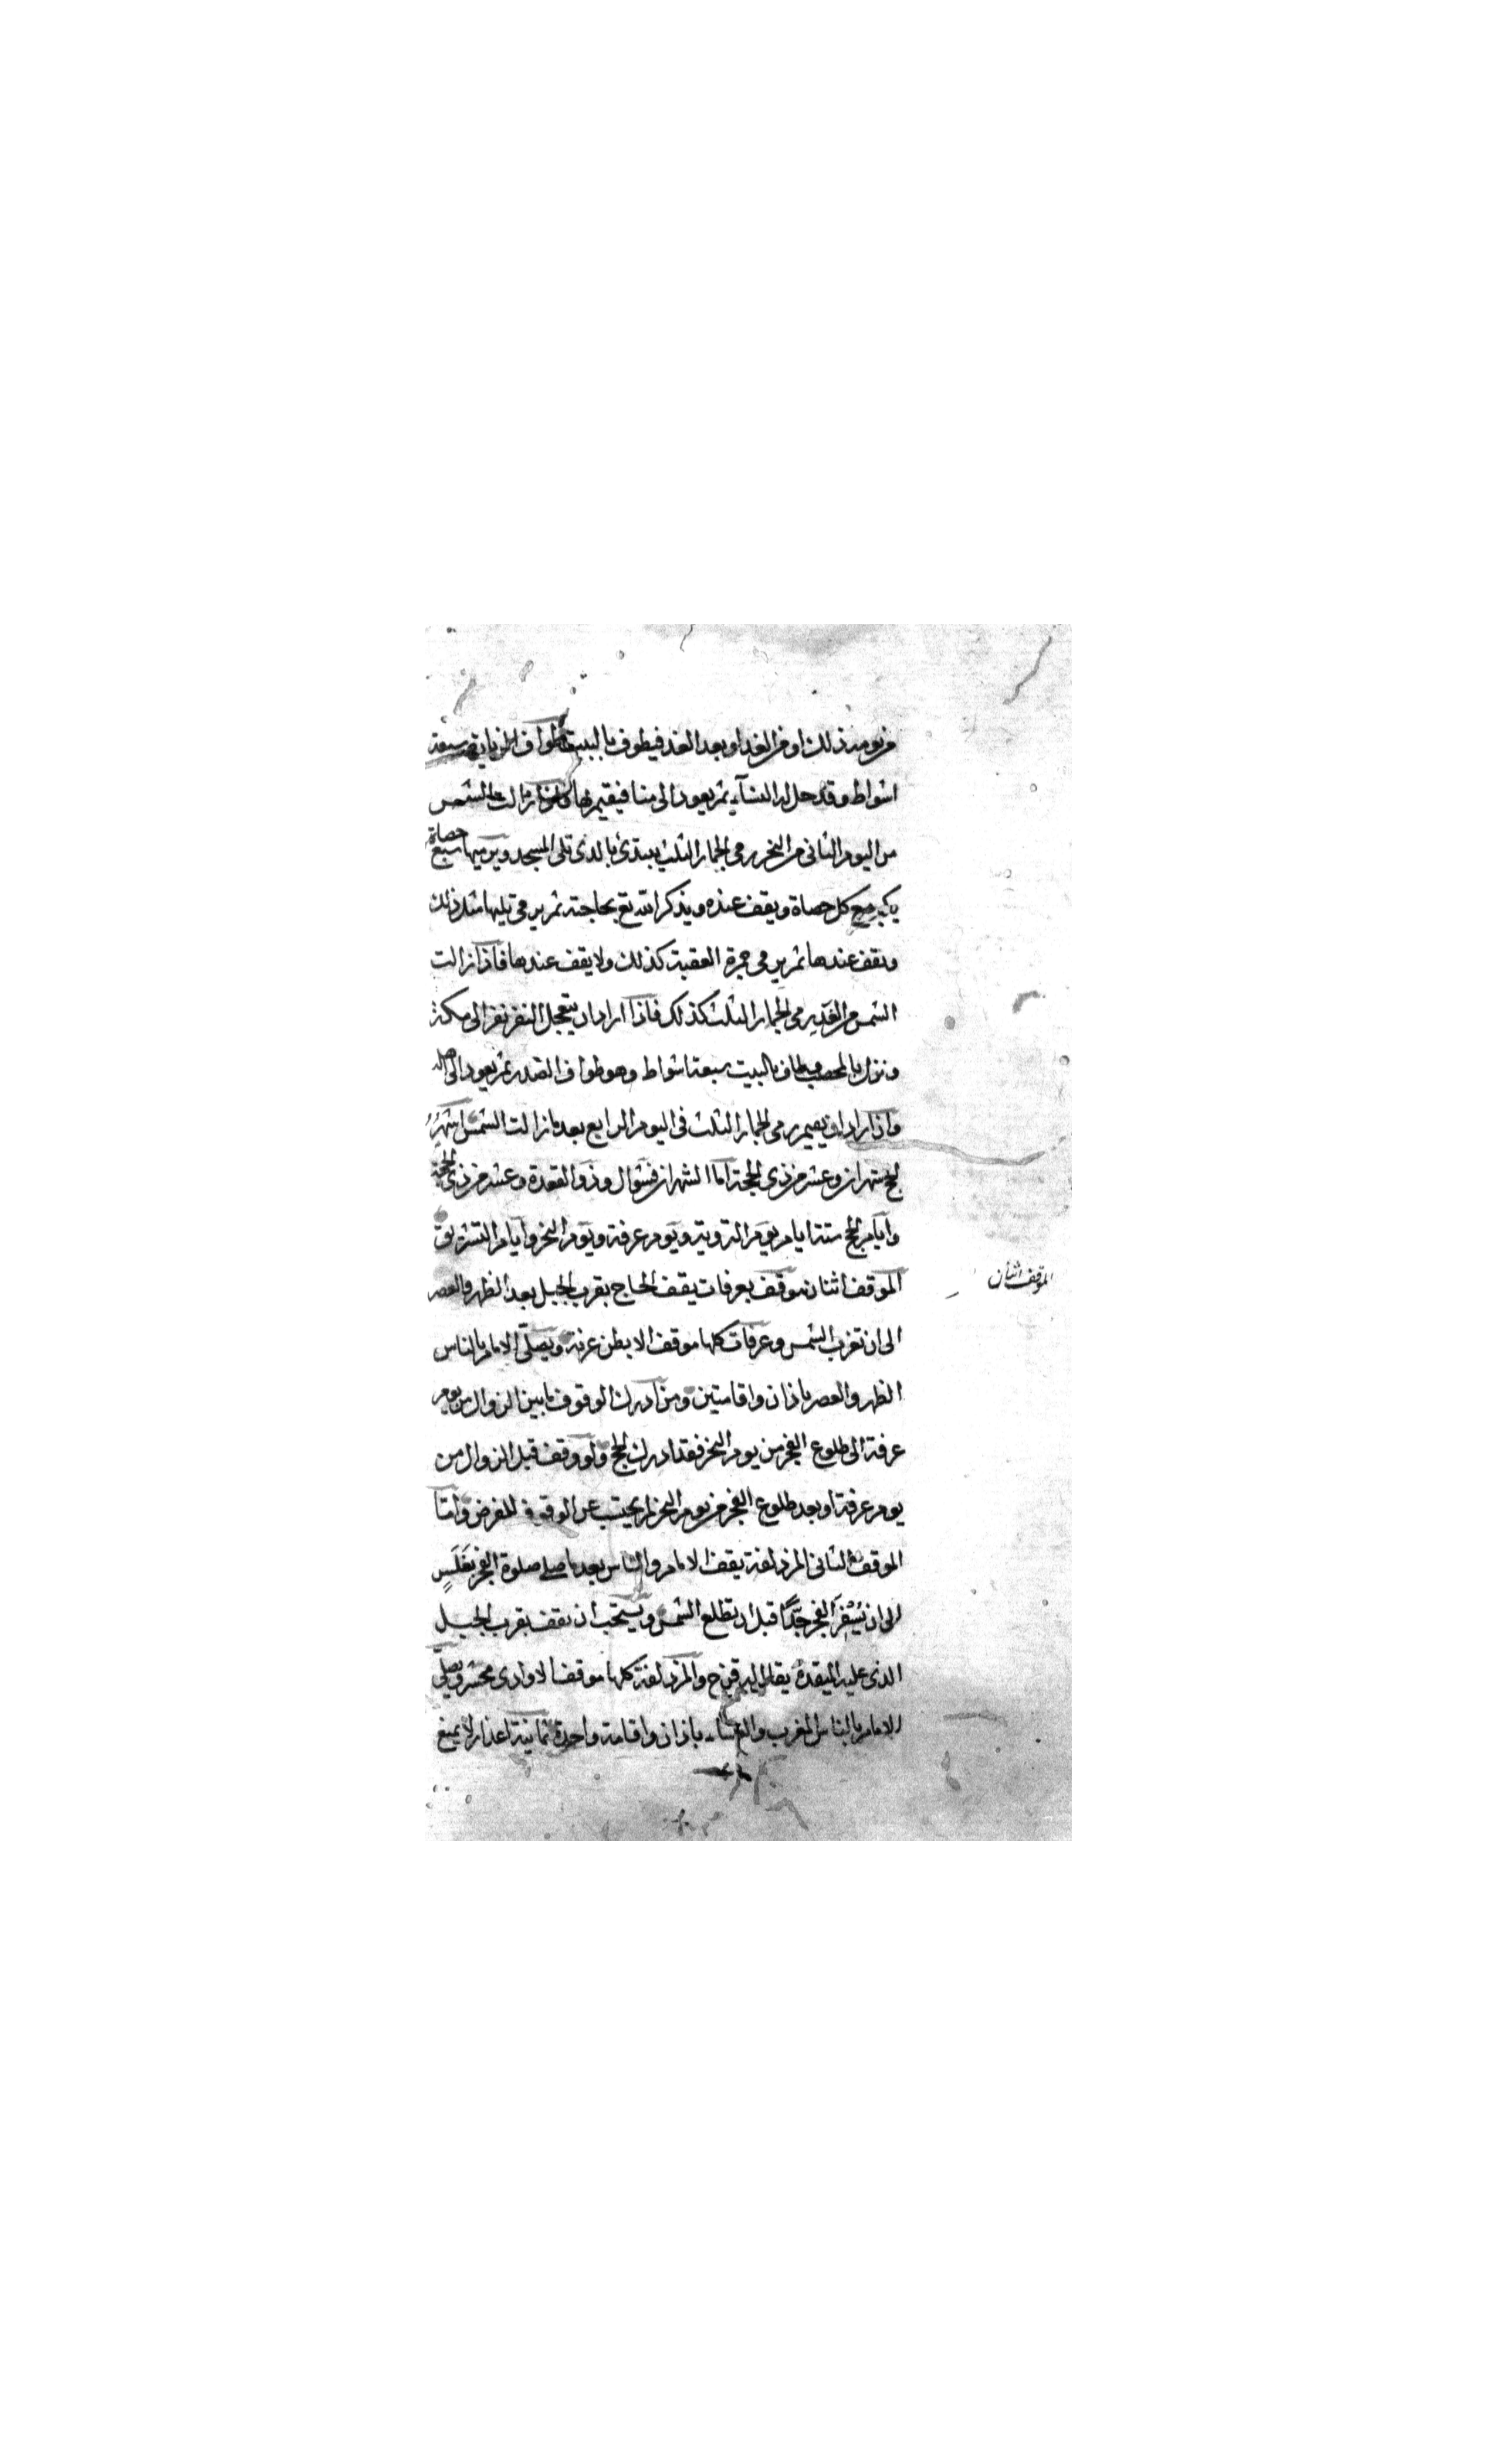 من يومه ذلك او من الغد او بعد الغد فيطوف بالبيت طواف الزيارة سبعة
اشواط وقد حل له النسآء ثم يعود الى منا فيقيم بها فاذا زالت الشمس
من اليوم الثانى من النحر رمى الجمار الثلث يبتدئ بالذى تلى المسجد ويرميها سبع حصاة
يكبر مع كل حصاة ويقف عنده ويذكر الله تع بحاجته ثم يرمى تليها مثل ذلك
ويقف عندها ثم يرمى جمرة العقبة كذلك ولا يقف عندها فاذا زالت
الشمس من الغد يرمى الجمار الثلث كذلك فاذا اراد ان يتعجل النفر نفر الى مكة
ونزل بالمحصب وطاف بالبيت سبعة اشواط وهو طواف الصدر ثم يعود الى اهله
واذا اراد ان يقيم رمى الجمار الثلث فى اليوم الرابع بعد ما زالت الشمس اشهر
الحج شهران وعشر من ذى الحجة اما الشهران فشوال وذو القعدة وعشر من ذى الحجة
وايام الحج ستة ايام يوم التروية ويوم عرفة ويوم النحر وايام التشريق
الموقف اثنان موقف بعرفات يقف الحاج بقرب الجبل بعد الظهر والعصر
الموقف اثنان
الى ان تغرب الشمس وعرفات كلها موقف الا بطن عرنة ويصلى الامام بالناس
الظهر والعصر باذان واقامتين ومن ادرك الوقوف ما بين الزوال من يوم
عرفة الى طلوع الفجر من يوم النحر فقد ادرك الحج ولو وقف قبل الزوال من
يوم عرفة او بعد طلوع الفجر من يوم النحر لم يحتسب عن الوقوف للفرض واما
الموقف الثانى المزدلفة يقف الامام والناس بعد ما صلى صلوة الفجر بغلس
الى ان يسفر الفجر جدًا قبل ان تطلع الشمس ويستحب ان يقف بقرب الجبل
الذى عليه الميقدة يقال له قزح والمزدلفة كلها موقف الا وادى محسر ويصلى
الامام بالناس المغرب والعشاء باذان واقامة واحدة ثمانية اعذار لا يمنع